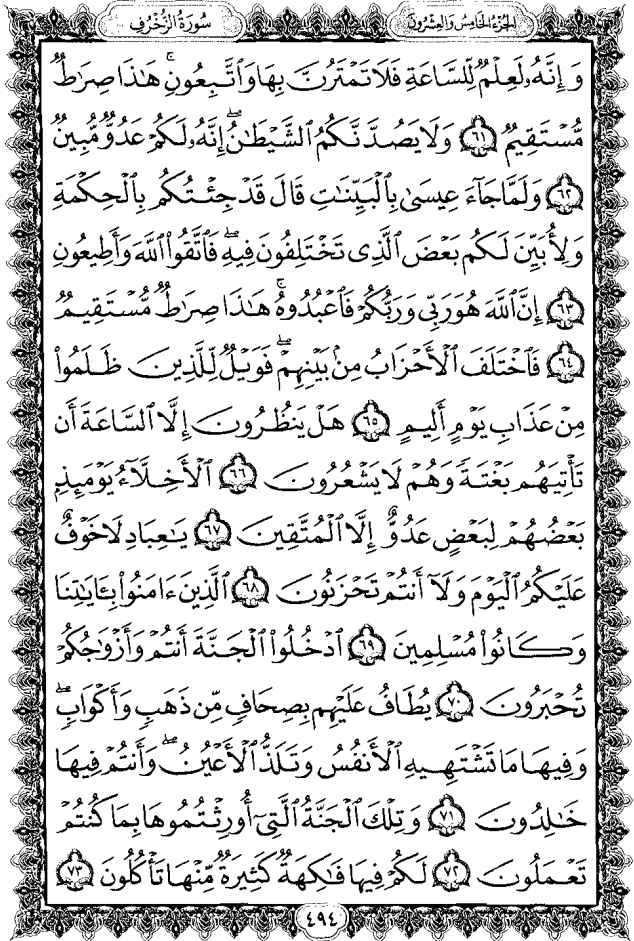 سُورَةُ الزُّخْرُفِ
الجُزءُ الخَامِسُ وَالعِشْرُونَ
وَإِنَّهُۥ لَعِلْمٌ لِّلسَّاعَةِ فَلَا تَمْتَرُنَّ بِهَا وَٱتَّبِعُونِ ۚ هَـٰذَا صِرَٰطٌ
مُّسْتَقِيمٌ ٦١ وَلَا يَصُدَّنَّكُمُ ٱلشَّيْطَـٰنُ ۖ إِنَّهُۥ لَكُمْ عَدُوٌّ مُّبِينٌ
٦٢ وَلَمَّا جَآءَ عِيسَىٰ بِٱلْبَيِّنَـٰتِ قَالَ قَدْ جِئْتُكُم بِٱلْحِكْمَةِ
وَلِأُبَيِّنَ لَكُم بَعْضَ ٱلَّذِى تَخْتَلِفُونَ فِيهِ ۖ فَٱتَّقُوا۟ ٱللَّهَ وَأَطِيعُونِ
٦٣ إِنَّ ٱللَّهَ هُوَ رَبِّى وَرَبُّكُمْ فَٱعْبُدُوهُ ۚ هَـٰذَا صِرَٰطٌ مُّسْتَقِيمٌ
٦٤ فَٱخْتَلَفَ ٱلْأَحْزَابُ مِنۢ بَيْنِهِمْ ۖ فَوَيْلٌ لِّلَّذِينَ ظَلَمُوا۟
مِنْ عَذَابِ يَوْمٍ أَلِيمٍ ٦٥ هَلْ يَنظُرُونَ إِلَّا ٱلسَّاعَةَ أَن
تَأْتِيَهُم بَغْتَةً وَهُمْ لَا يَشْعُرُونَ ٦٦ ٱلْأَخِلَّآءُ يَوْمَئِذٍۭ
بَعْضُهُمْ لِبَعْضٍ عَدُوٌّ إِلَّا ٱلْمُتَّقِينَ ٦٧ يَـٰعِبَادِ لَا خَوْفٌ
عَلَيْكُمُ ٱلْيَوْمَ وَلَآ أَنتُمْ تَحْزَنُونَ ٦٨ ٱلَّذِينَ ءَامَنُوا۟ بِـَٔايَـٰتِنَا
وَكَانُوا۟ مُسْلِمِينَ ٦٩ ٱدْخُلُوا۟ ٱلْجَنَّةَ أَنتُمْ وَأَزْوَٰجُكُمْ
تُحْبَرُونَ ٧٠ يُطَافُ عَلَيْهِم بِصِحَافٍ مِّن ذَهَبٍ وَأَكْوَابٍ ۖ
وَفِيهَا مَا تَشْتَهِيهِ ٱلْأَنفُسُ وَتَلَذُّ ٱلْأَعْيُنُ ۖ وَأَنتُمْ فِيهَا
خَـٰلِدُونَ ٧١ وَتِلْكَ ٱلْجَنَّةُ ٱلَّتِىٓ أُورِثْتُمُوهَا بِمَا كُنتُمْ
تَعْمَلُونَ ٧٢ لَكُمْ فِيهَا فَـٰكِهَةٌ كَثِيرَةٌ مِّنْهَا تَأْكُلُونَ ٧٣
٤٩٤